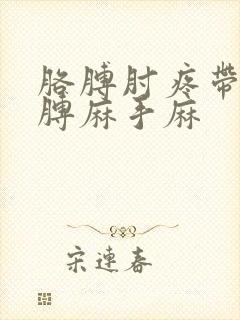 胳膊肘疼帶
膊麻手麻
宋連春